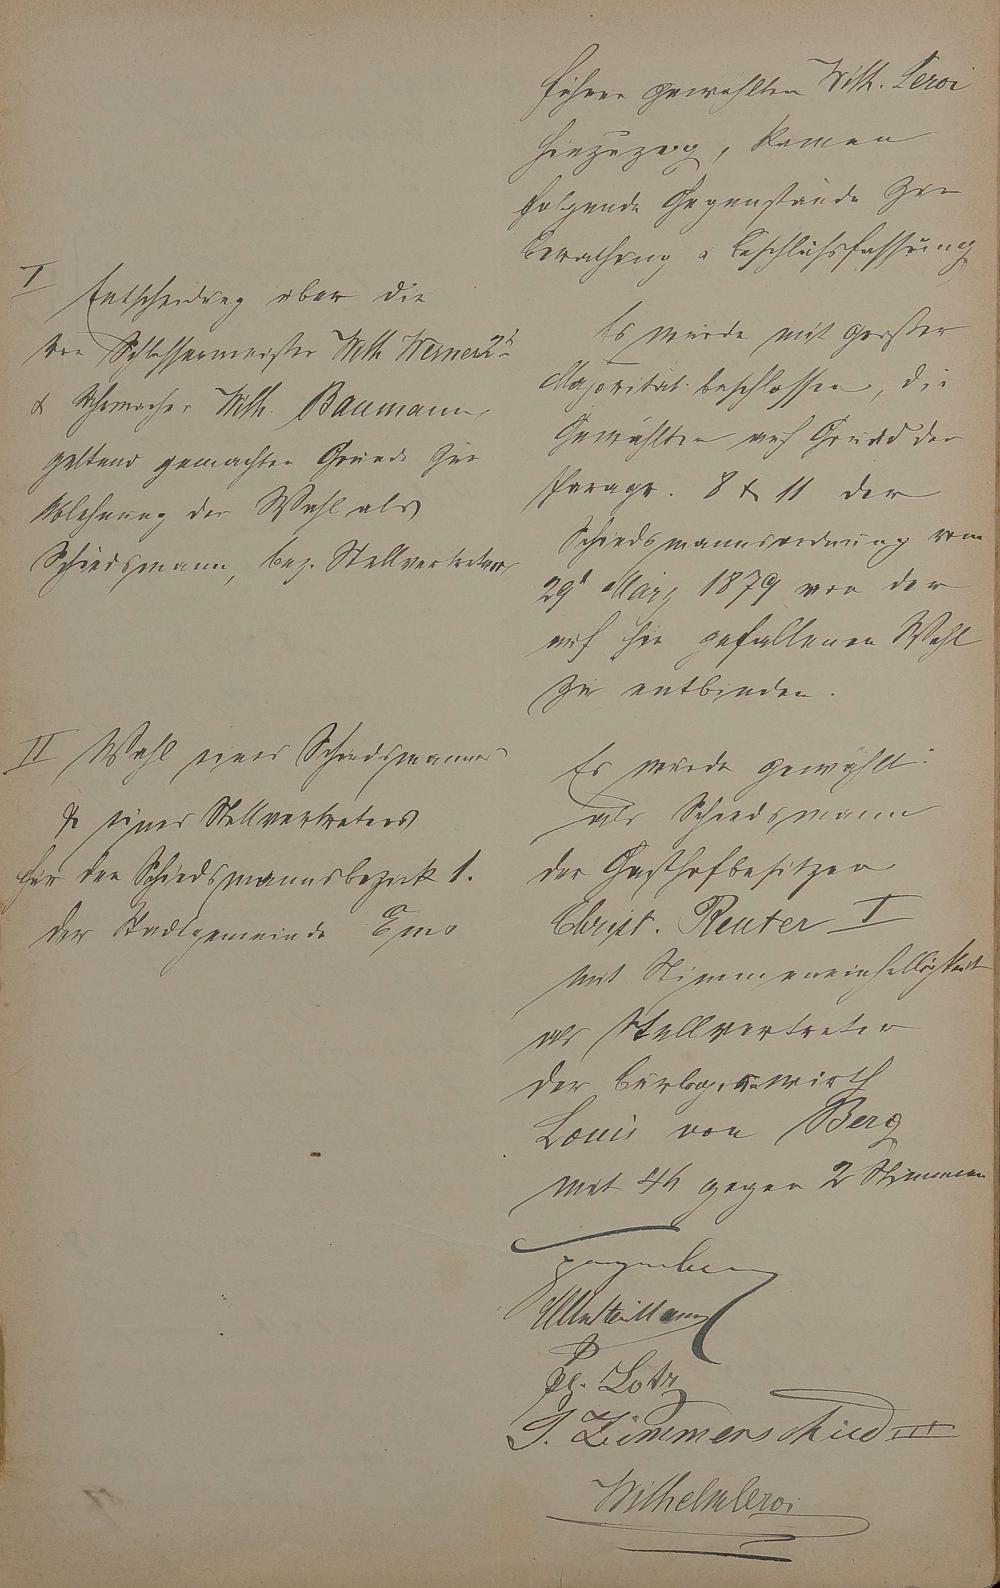 führer gewählten Wilh. Leroi
hinzuzog, kamen
folgende Gegenstände zur
Berathung & Beschlußfassung
I
Entscheidung über die
von Schlossermeister Wilh. Werner 2r
& Uhrmacher Wilh. Baumann
geltend gemachten Gründe zur
Ablehnung der Wahl als
Schiedsmann, bez. Stellvertreter
Es wurde mit großer
Majorität beschlossen, die
Gewählten auf Grund der
Paragr. 8 & 11 der
Schiedsmannsordnung vom
29t März 1879 von der
auf sie gefallenen Wahl
zu entbinden.
II Wahl eines Schiedsmannes
& eines Stellvertreters
für den Schiedsmannsbezirk 1.
der Stadtgemeinde Ems
Es wurde gewählt:
als Schiedsmann
der Gasthofbesitzer
Christ. Reuter I
mit Stimmeneinhelligkeit
als Stellvertreter
der
Louis von Berg
mit gegen 2 Stimmen
Ph. Lotz
P. Zimmerschied III
Wilhelm Leroi